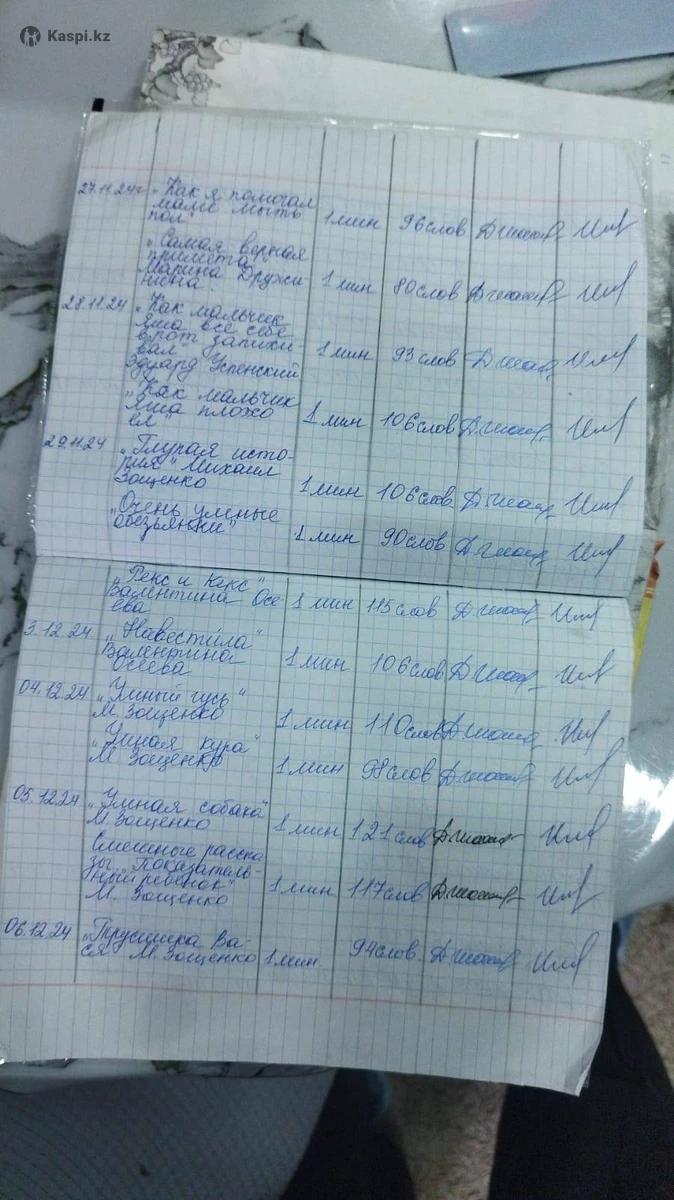 Kaspi.kz
27.11.24г „Как я помогал
маме мыть
пол" 1 мин 96 слов
„Самая верная
примета"
Марина Дружи-
нина. 1 мин 80 слов
28.11.24 „Как мальчик
Яша все себе
в рот запихи-
вал"
Эдуард Успенский 1 мин 93 слов
„Как мальчик
Яша плохо
ел" 1 мин 106 слов
29.11.24 „Глупая исто-
рия" Михаил
Зощенко 1 мин 106 слов
„Очень умные
обезьянки" 1 мин 90 слов
„Рекс и Кекс"
Валентина Осе
ева 1 мин 115 слов
3.12.24 „Навестила"
Валентина
Осеева 1 мин 106 слов
04.12.24 „Умный гусь"
М. Зощенко 1 мин 110 слов
„Умная кура"
М Зощенко 1 мин 98 слов
05.12.24 „Умная собака"
М Зощенко 1 мин 121 слов
Смешные расска
зы „Показатель-
ный ребенок"
М. Зощенко 1 мин 117 слов
06.12.24 „Трусишка Ва-
ся" М. Зощенко 1 мин 94 слов